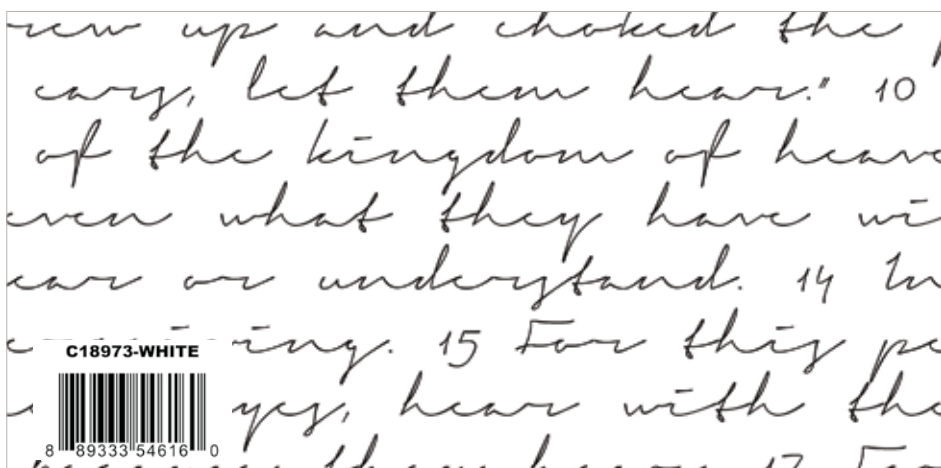 up and choked the
ears, let them hear." 10
of the kingdom of heave
even what they have wi
ear or understand. 14 In
ing. 15 For this pe
C18973-WHITE
yes, hear with the
8 89333 54616 0